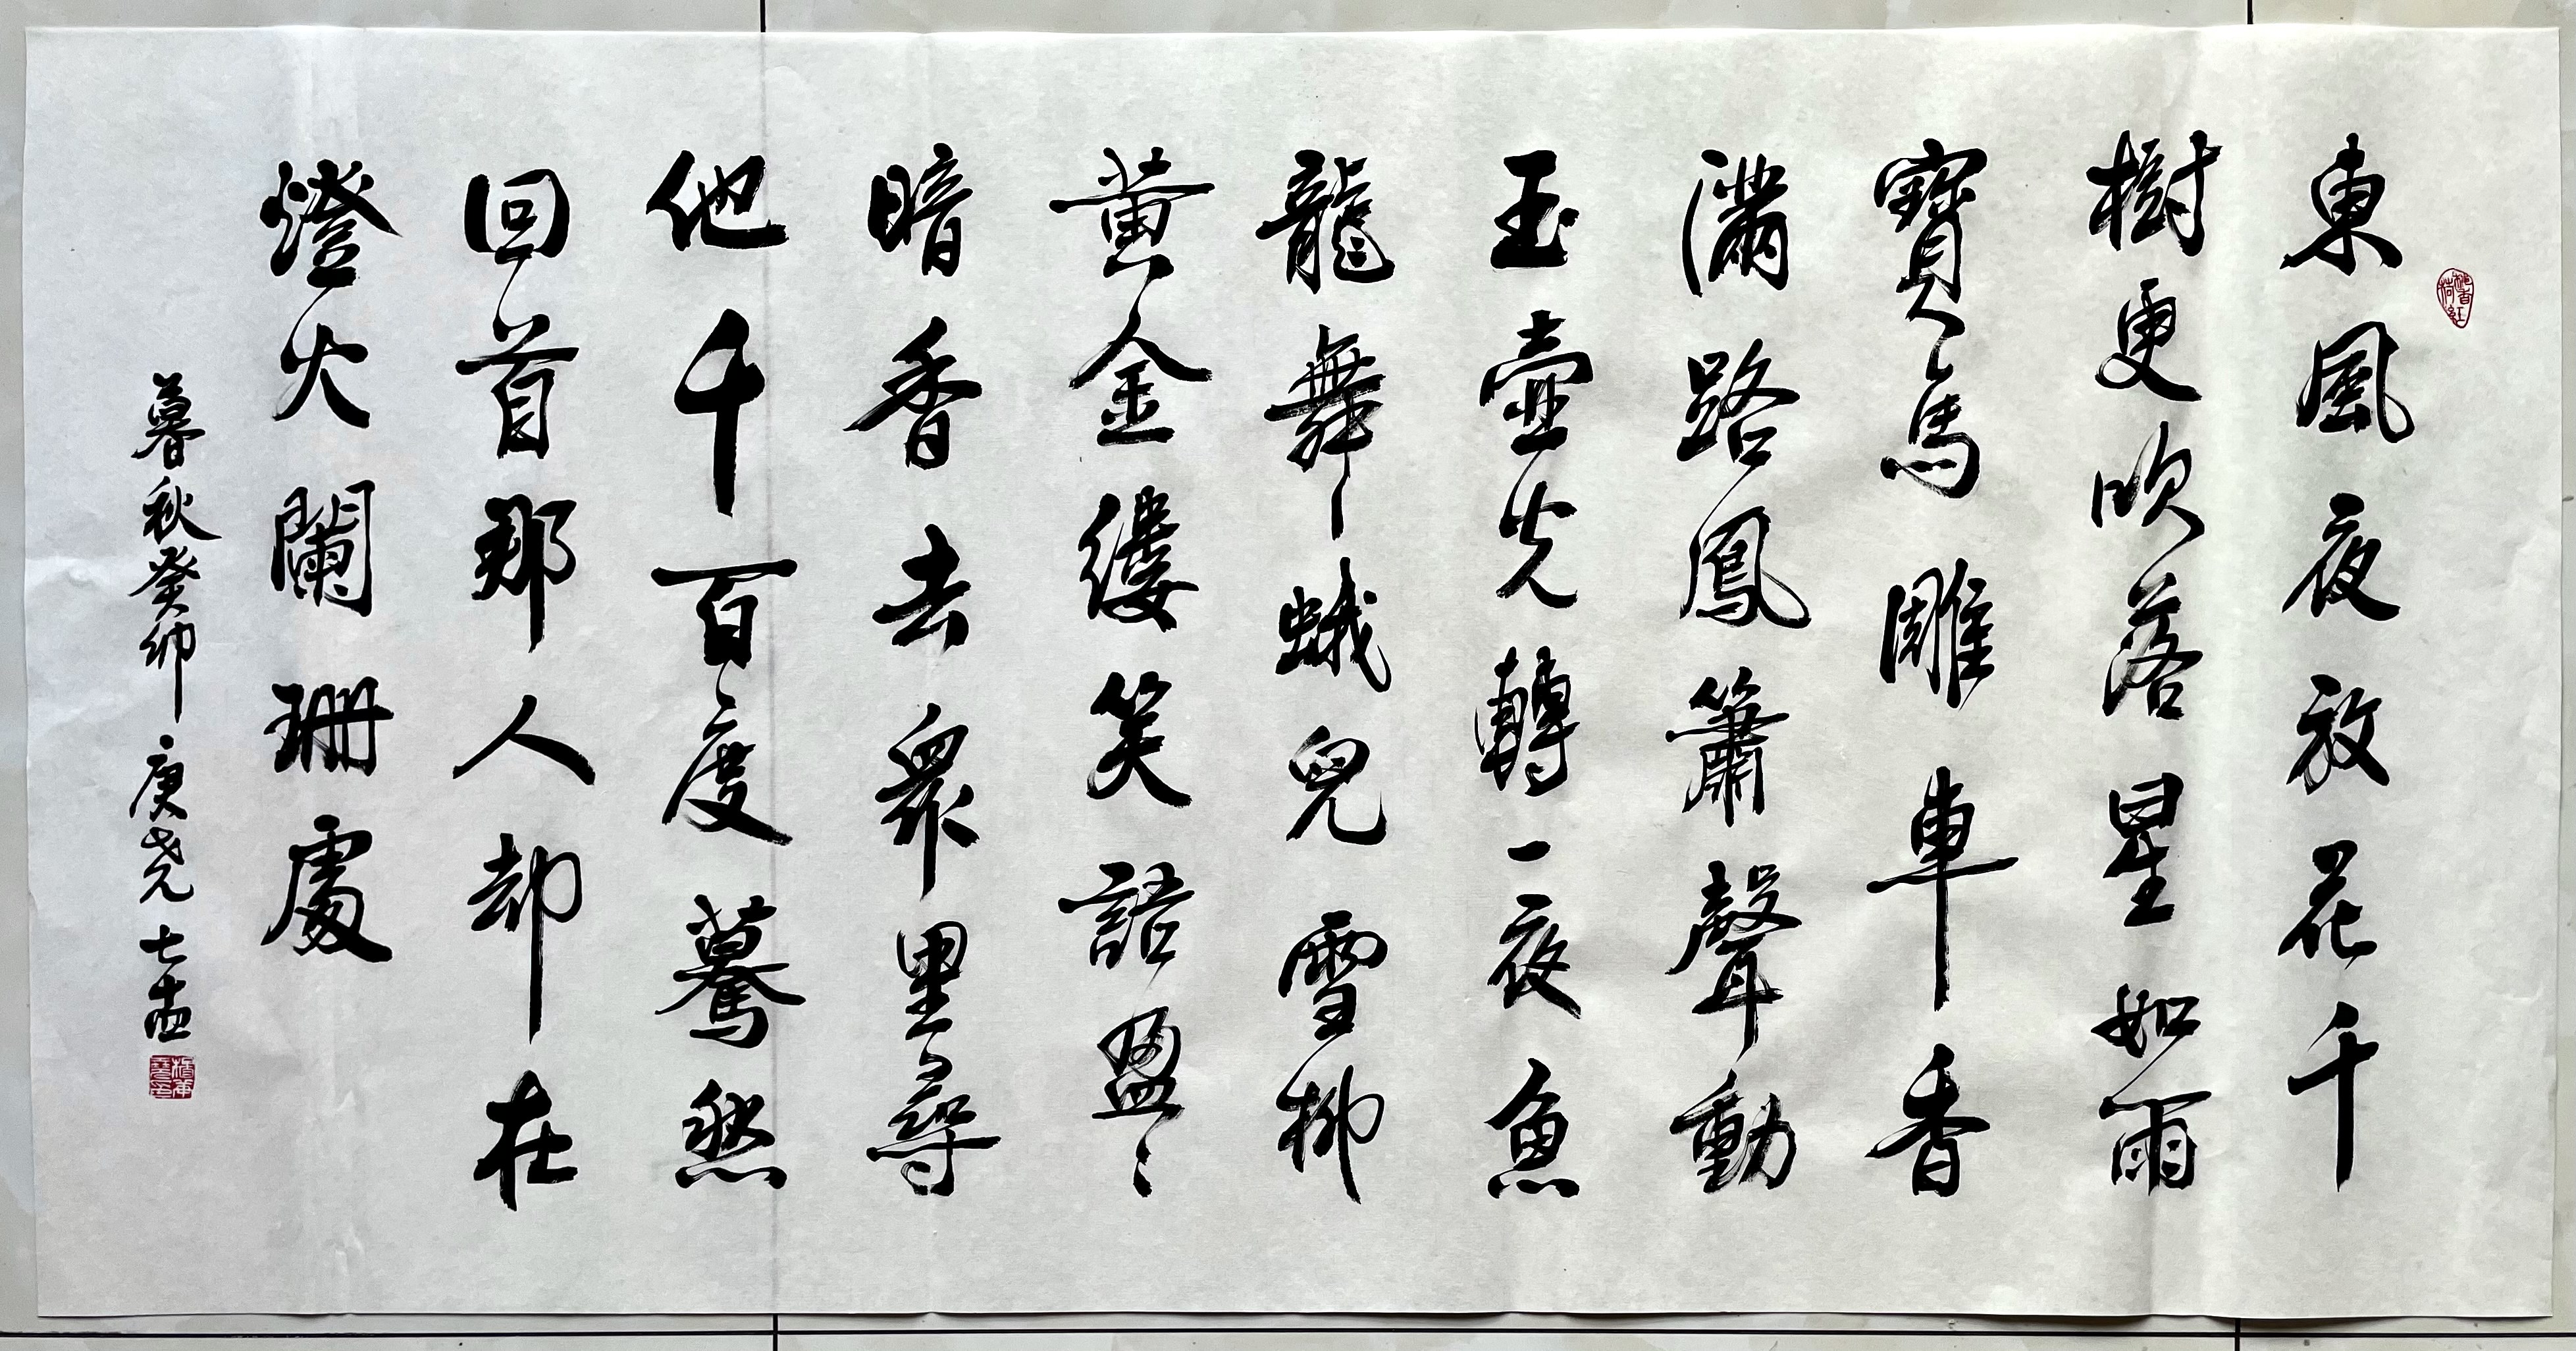 東風夜放花千
樹更吹落星如雨
寶馬雕車香
滿路鳳簫聲動
玉壺光轉一夜魚
龍舞蛾兒雪柳
黄金縷笑語盈〻
暗香去衆里尋
他千百度驀然
回首那人却在
燈火闌珊處
暮秋癸卯庚堯七盂